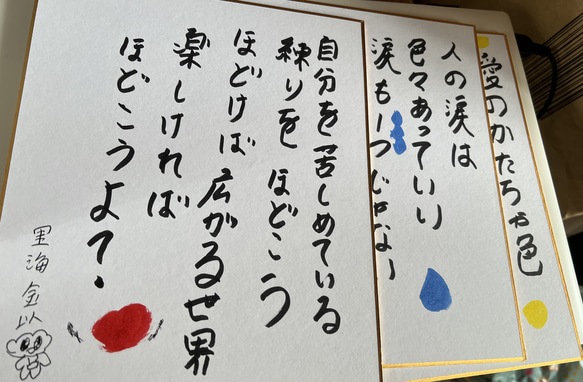 自分を苦しめている
練りを ほどこう
ほどけば 広がる世界
楽しければ
ほどこうよ?.
里海 金以
人の涙は
色々あっていい
涙も1つじゃなー
愛のかたちや色